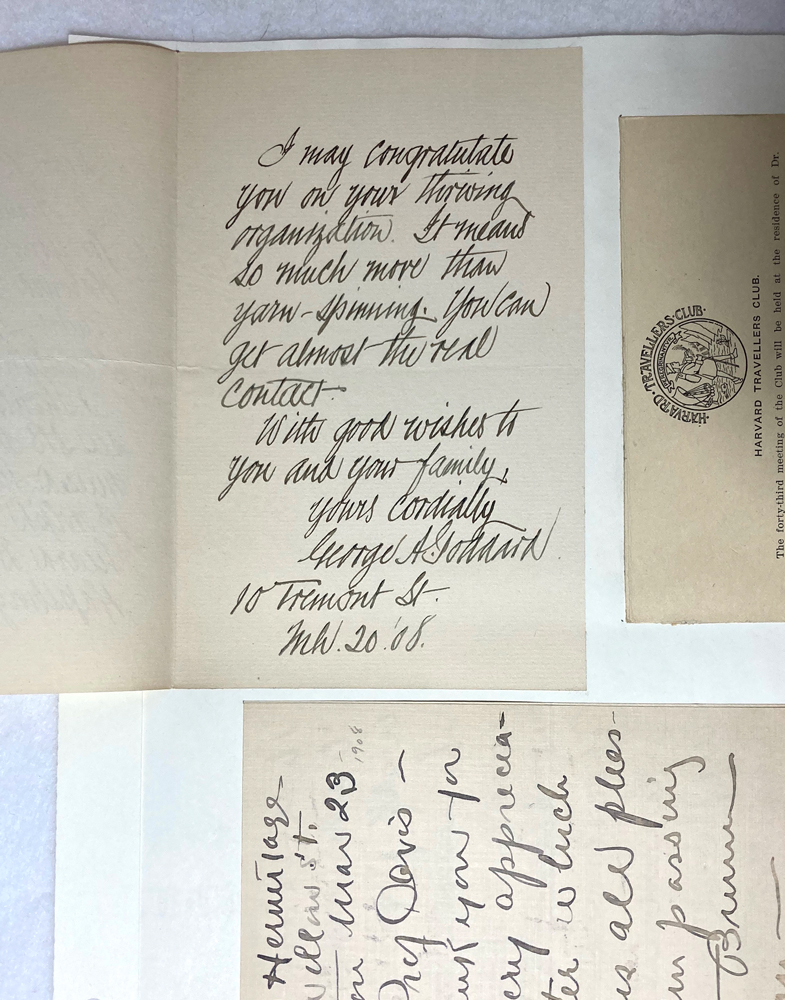 I may congratulate
you on your thriving
organization. It means
so much more than
yarn-spinning. You can
get almost the real
contact.
With good wishes to
you and your family,
yours cordially
George A. Goddard
10 Tremont St.
Mh. 20. '08.
HARVARD · TRAVELLERS · CLUB ·
HARVARD TRAVELLERS CLUB.
The forty-third meeting of the Club will be held at the residence of Dr.
Hermitage
Willow St.
Mar 23
1908
Prof Davis —
you for
very apprecia-
which
as all pleas-
passing